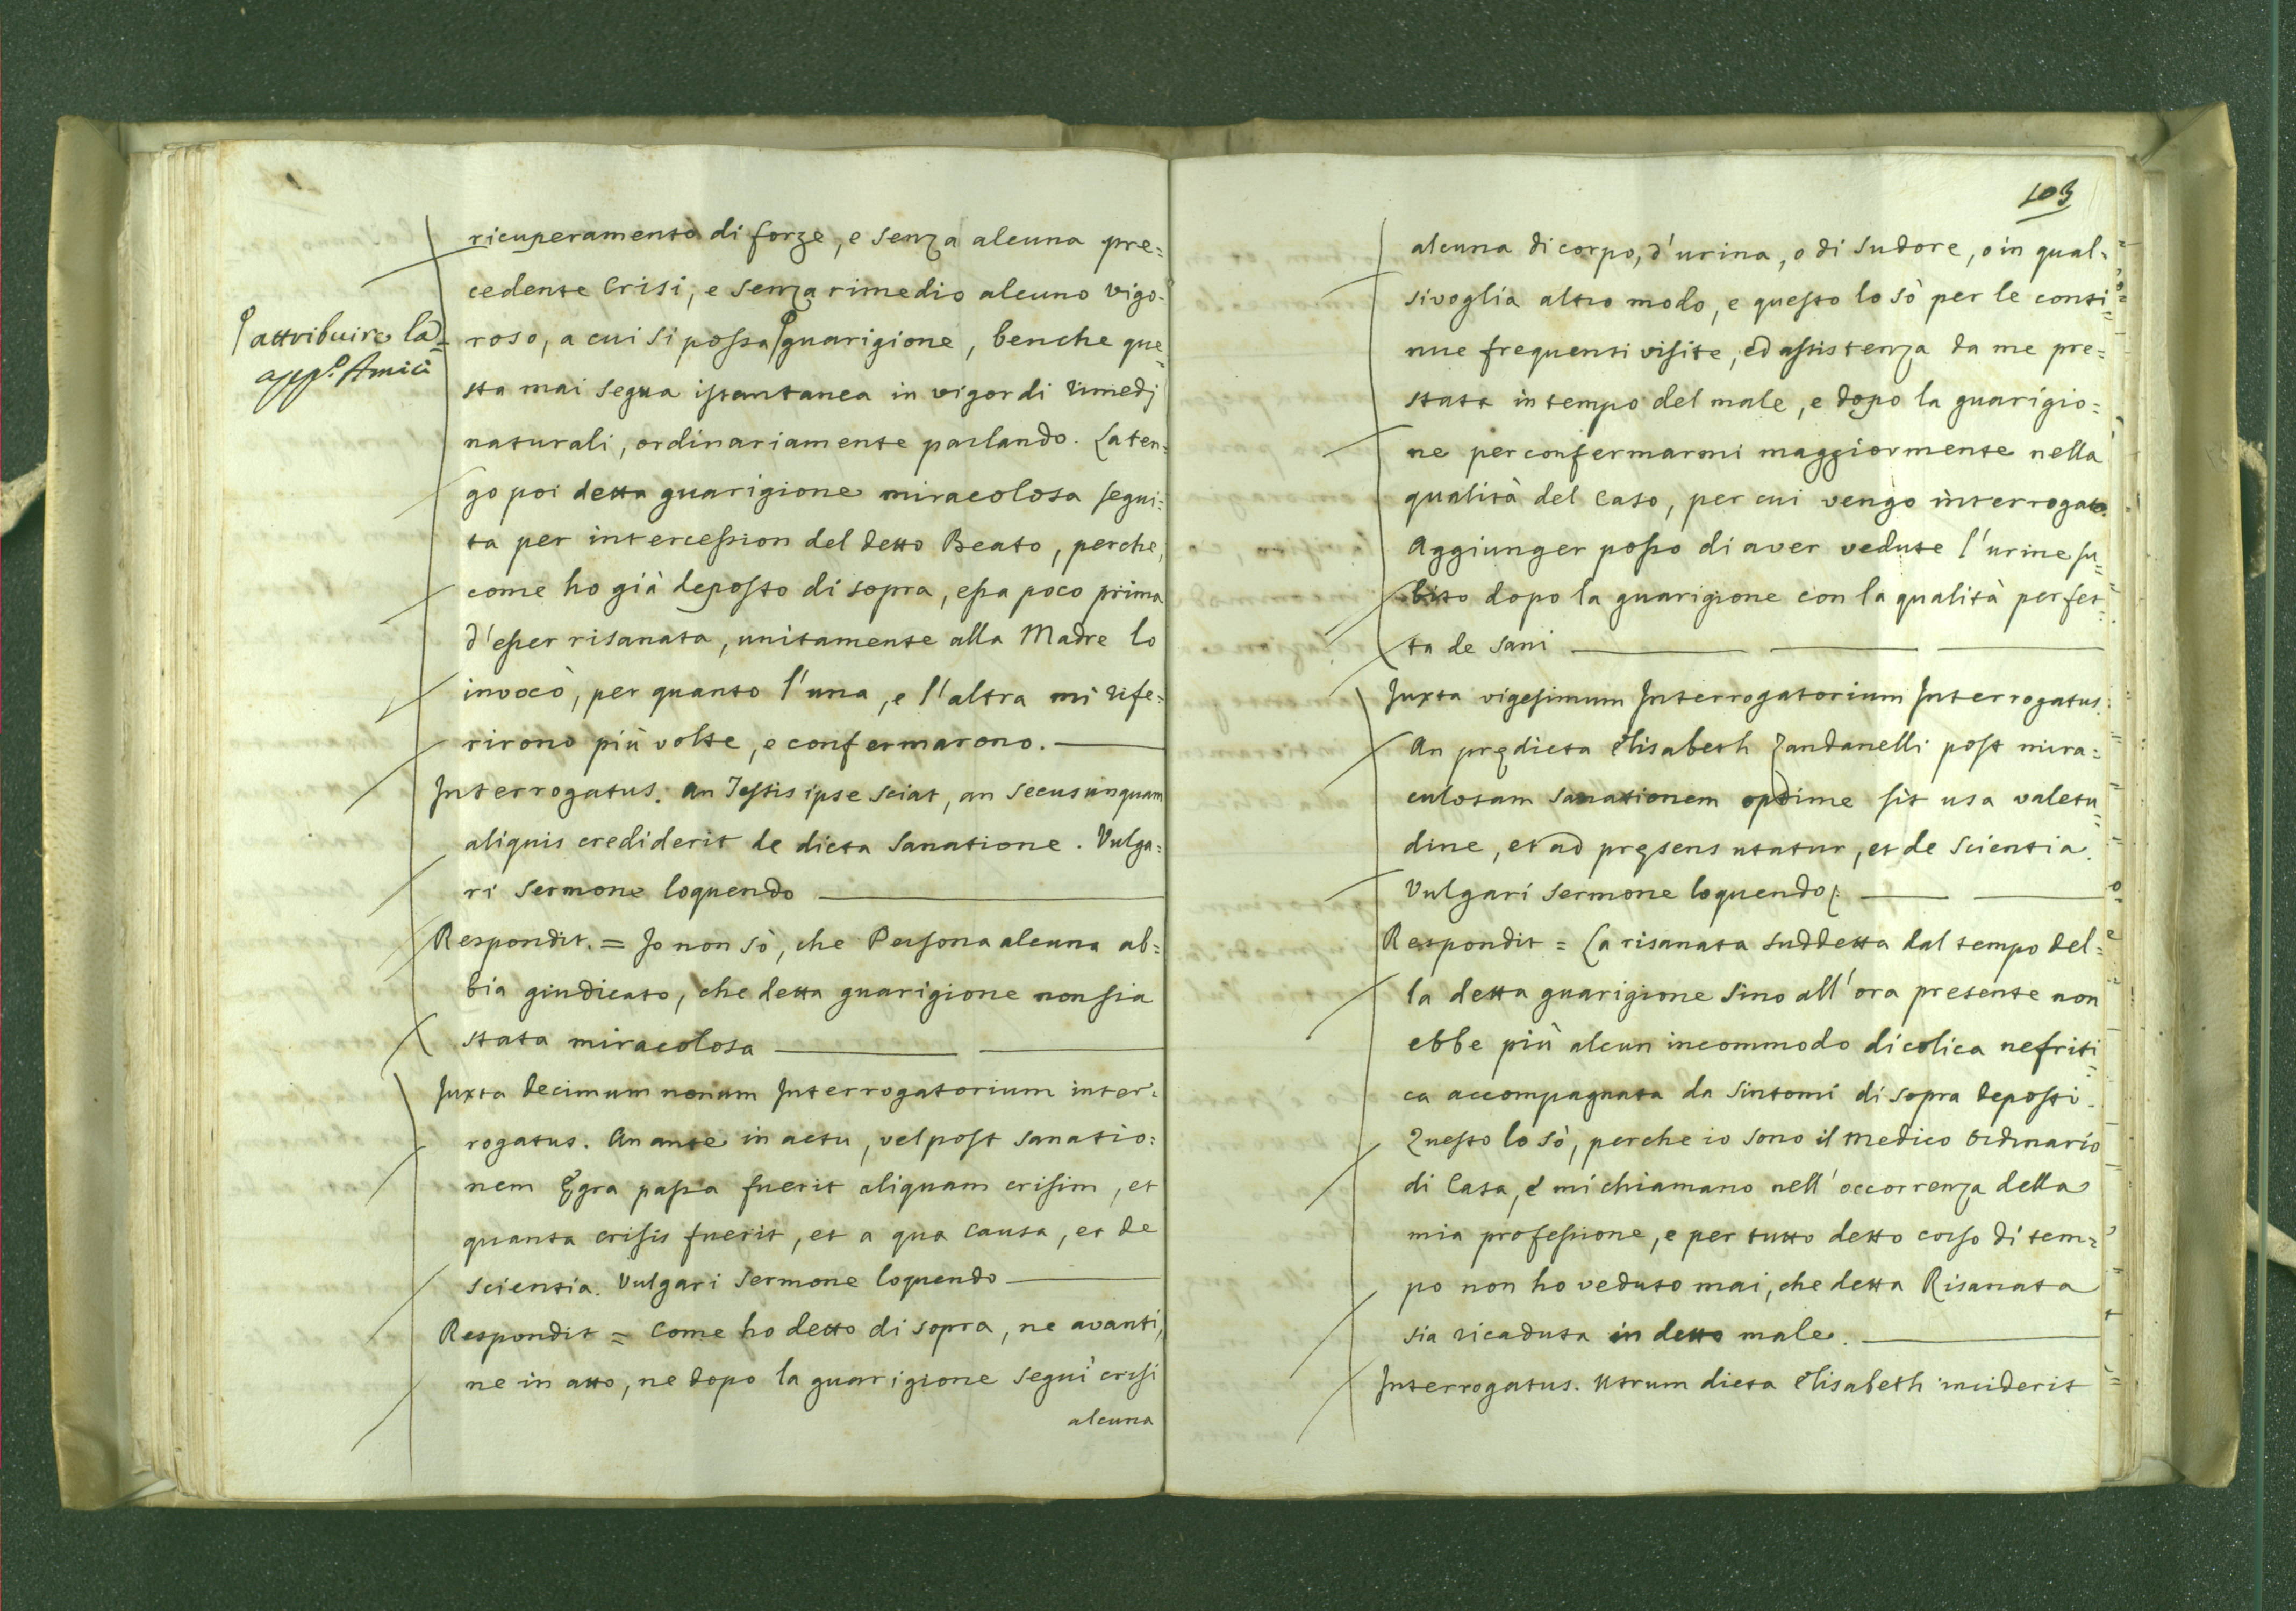 ricuperamento di forze, e senza alcuna pre=
cedente Crisi, e senza rimedio alcuno vigo-
attribuire la
roso, a cui si possa guarigione, benche que=
app.º Amici
sta mai segua istantanea in vigor di rimedj
naturali, ordinariamente parlando. La ten=
go poi detta guarigione miracolosa segui=
ta per intercession del detto Beato, perche,
come ho già deposto di sopra, essa poco prima
d'esser risanata, unitamente alla Madre lo
invocò, per quanto l'una, e l'altra mi rife=
rirono più volte, e confermarono.
Interrogatus. An Testis ipse sciat, an secus unquam
aliquis crediderit de dicta sanatione. Vulga=
ri sermone loquendo
Respondit. = Io non sò, che Persona alcuna ab=
bia giudicato, che detta guarigione non sia
stata miracolosa
Juxta decimum nonum Interrogatorium inter=
rogatus. An ante in actu, vel post sanatio=
nem Ęgra passa fuerit aliquam crisim, et
quanta crisis fuerit, et a qua causa, et de
scientia. Vulgari sermone loquendo
Respondit = Come ho detto di sopra, ne avanti,
ne in atto, ne dopo la guarigione seguì crisi
alcuna
103
alcuna di corpo, d'urina, o di sudore, o in qual=
sivoglia altro modo, e questo lo sò per le conti=
nue frequenti visite, ed assistenza da me pre=
stata in tempo del male, e dopo la guarigio=
ne per confermarmi maggiormente nella
qualità del caso, per cui vengo interrogato.
Aggiunger posso di aver vedute l'urine su=
bito dopo la guarigione con la qualità perfet=
ta de sani
Juxta vigesimum Interrogatorium Interrogatus.
An prędicta Elisabeth Zandanelli post mira=
culosam sanationem optime sit usa valetu=
dine, et ad pręsens utatur, et de scientia.
Vulgari sermone loquendo.
Respondit = La risanata suddetta dal tempo del=
la detta guarigione sino all'ora presente non
ebbe più alcun incommodo di colica nefriti=
ca accompagnata da sintomi di sopra deposti.
Questo lo sò, perche io sono il Medico Ordinario
di Casa, e mi chiamano nell'occorrenza della
mia professione, e per tutto detto corso di tem=
po non ho veduto mai, che detta Risanata
sia ricaduta in detto male.
Interrogatus. Utrum dicta Elisabeth inciderit